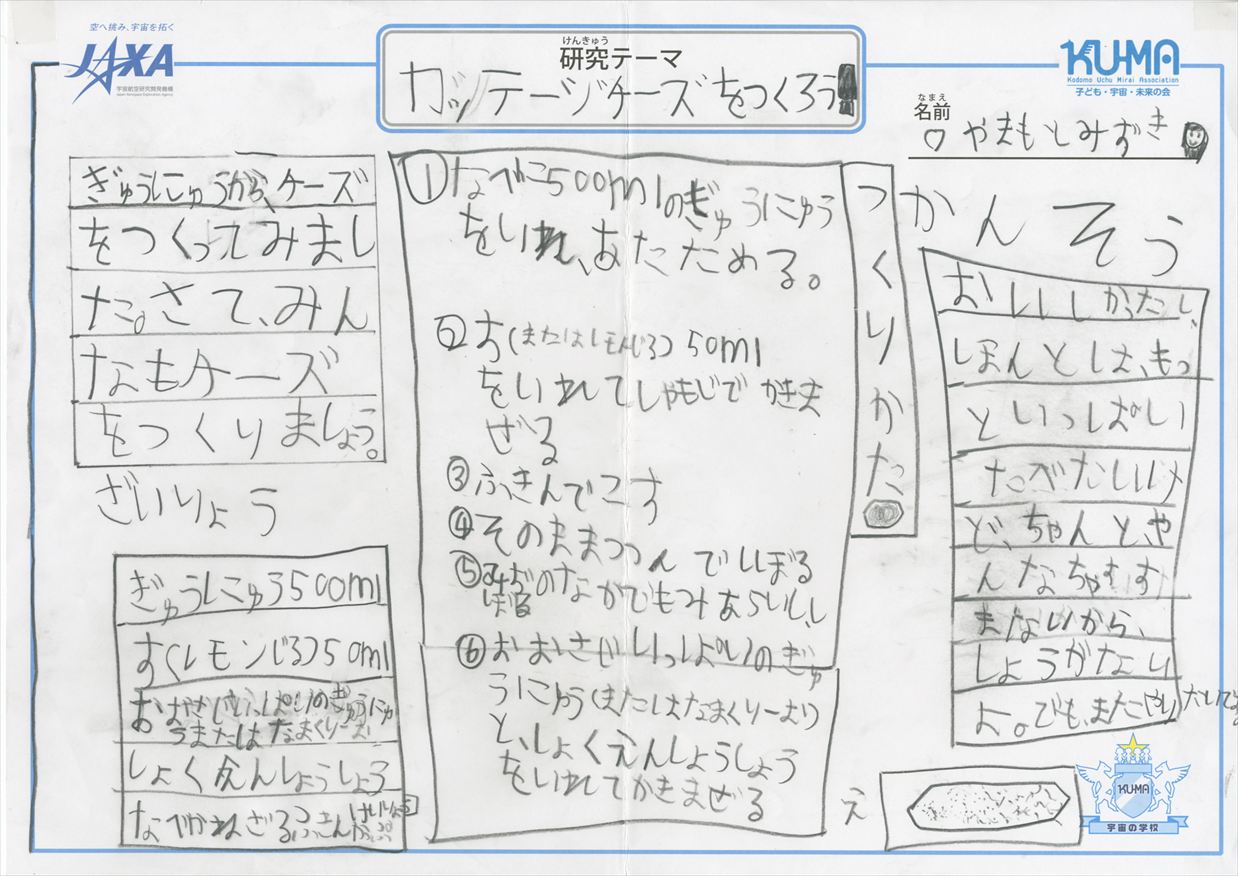 空へ挑み、宇宙を拓く
JAXA
宇宙航空研究開発機構
Japan Aerospace Exploration Agency
けんきゅう
研究テーマ
カッテージケーズをつくろう
KU-MA
Kodomo Uchu Mirai Association
子ども・宇宙・未来の会
なまえ
名前
やまもとみずき
ぎゅうにゅうから、ケーズ
をつくってみまし
た。さて、みん
なもケーズ
をつくりましょう。
ざいりょう
ぎゅうにゅう500ml
す(レモンじる)50ml
おおさじいっぱいのぎゅうにゅ
うまたはなまくりーむ
しょくえんしょうしょう
なべかねざるふきん
つくりかた
①なべに500mlのぎゅうにゅう
をいれ、あたためる。
②す(またはレモンじる)50ml
をいれてしゃもじでかきま
ぜる
③ふきんでこす
④そのままつつんでしぼる
⑤みずのなかでもみあらいし、
しぼる
⑥おおさじいっぱいのぎゅ
うにゅう(またはなまくりーむ)
と、しょくえんしょうしょう
をいれてかきまぜる
かんそう
おいしかったし、
ほんとは、もっ
といっぱい
たべたいけ
ど、ちゃんと、や
んなちゃすす
まないから、
しょうがない
よ。でも、またやりたいです
え
KU-MA
宇宙の学校